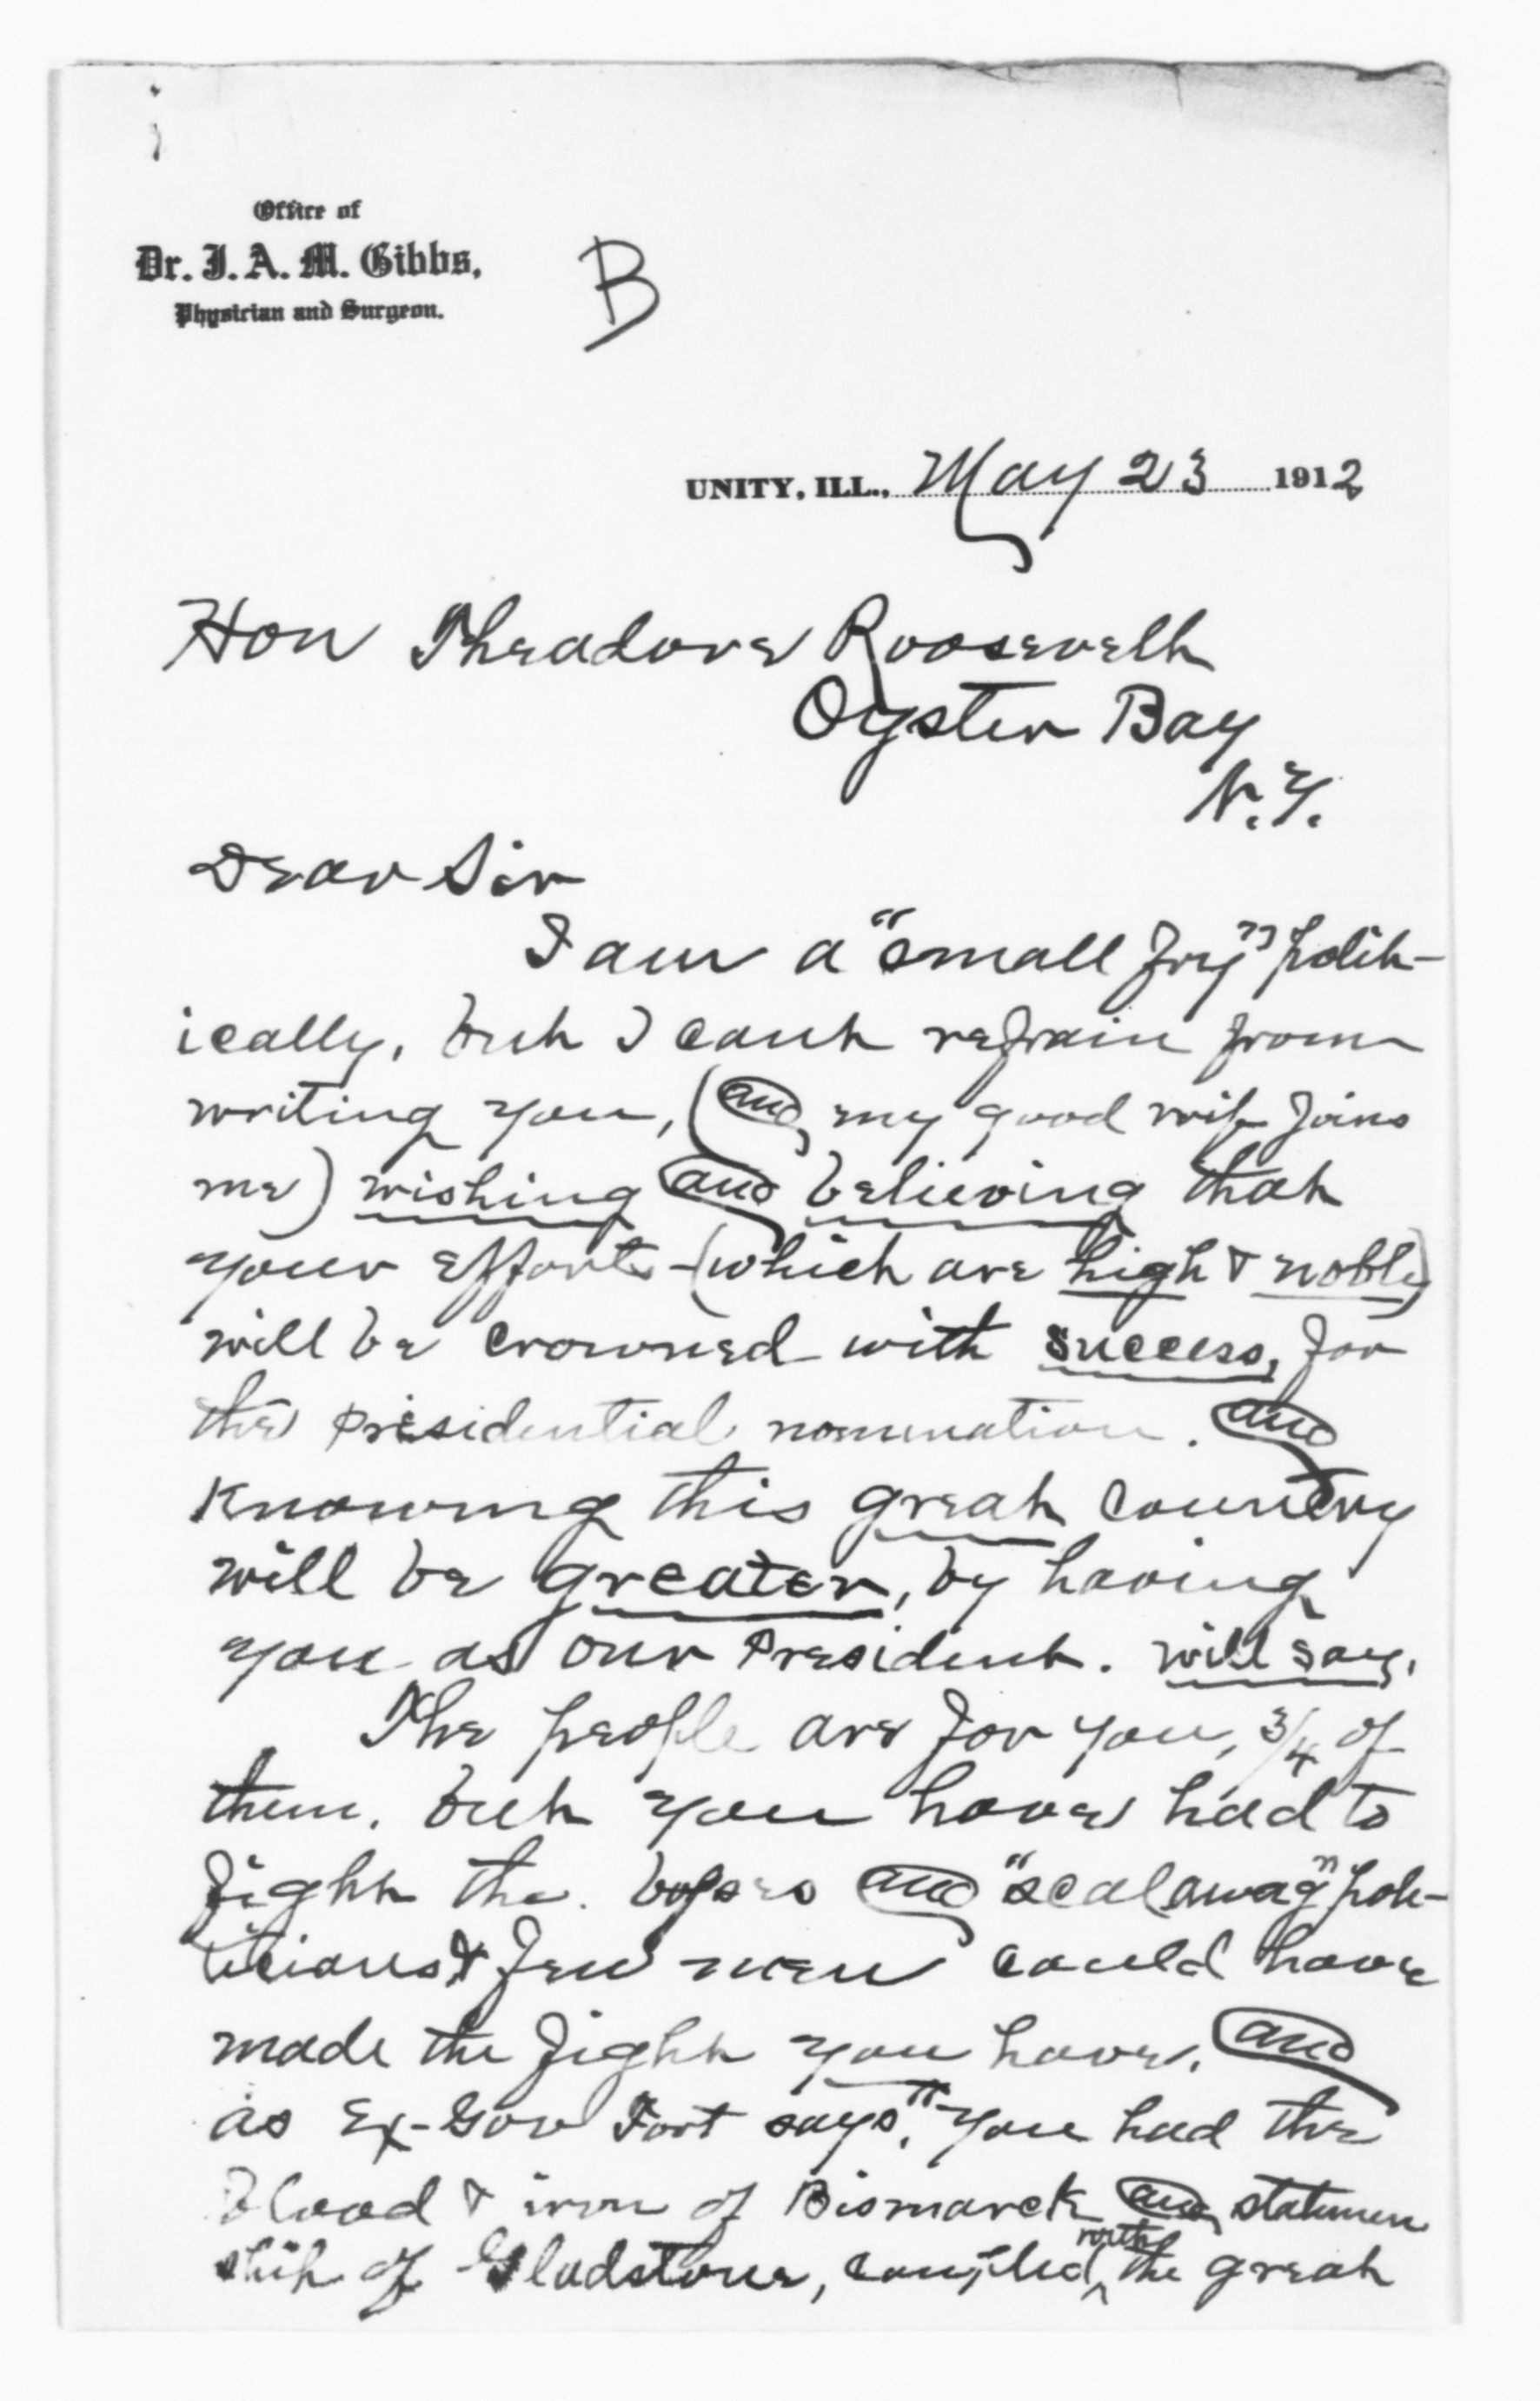 Office of
Dr. J. A. M. Gibbs,
Physician and Surgeon.
B
UNITY, ILL., May 23 1912
Hon Theadore Roosevelt
Oyster Bay
N.Y.
Dear Sir
I am a "small fry" polit-
ically, but I cant refrain from
writing you, (and my good wife joins
me) wishing and believing that
your efforts - (which are high & noble)
will be crowned with success, for
the presidential nomination. and
Knowing this great country
will be greater, by having
you as our President. will say,
The people are for you, 3/4 of
them, but you have had to
fight the bosses and "scalawag" poli-
ticians & few men could have
made the fight you have. and
as Ex-Gov Fort says, "you had the
Blood & iron of Bismarck and statesmen
ship of Gladstone, coupled with the great